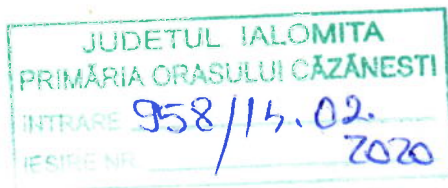 JUDETUL IALOMITA
PRIMĂRIA ORASULUI CĂZĂNESTI
INTRARE 958/14.02.
IESIRE NR 2020